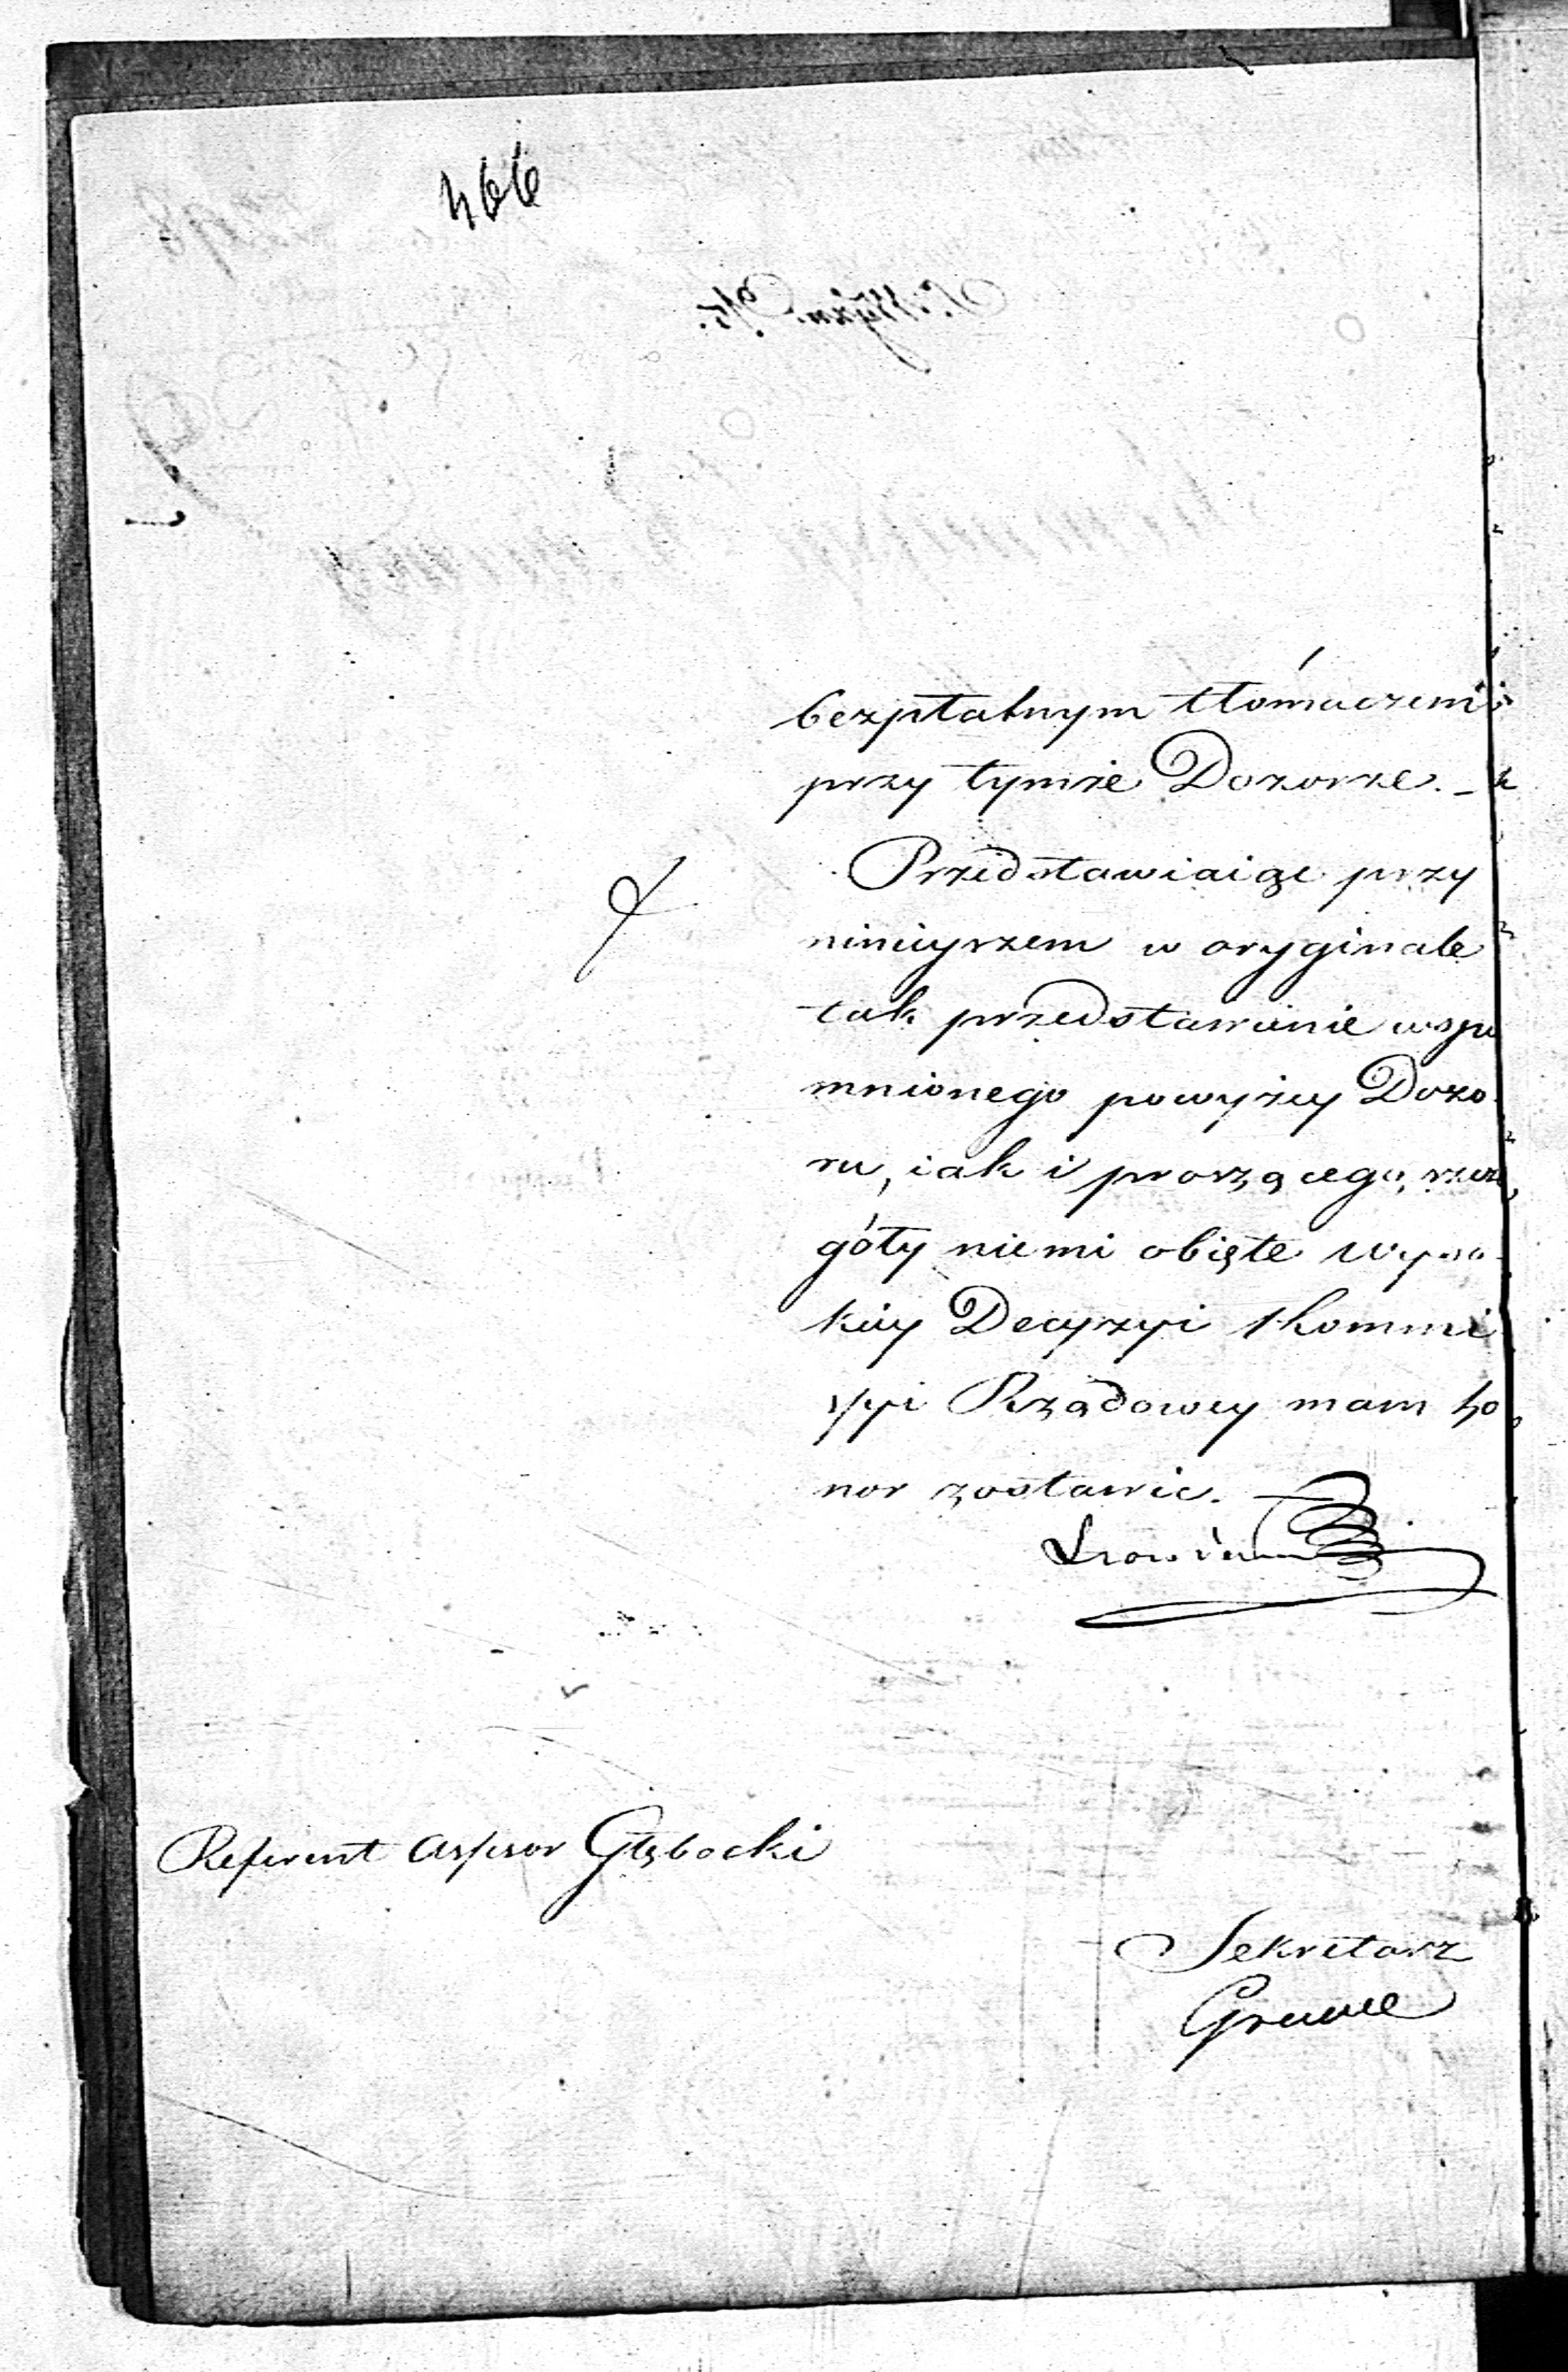 466
bezpłatnym tłómaczem
przy tymże Dozorze. –
Przedstawiaiąc przy
ninieyszem w oryginale
tak przedstawienie wspo
mnionego powyżey Dozo
ru, iak i proszącego, szcze
góły niemi obięte wyso
kiey Decyzyi Kommi
ssyi Rządowey mam ho
nor zostawić.
Referent Assesor Głębocki
Sekretarz